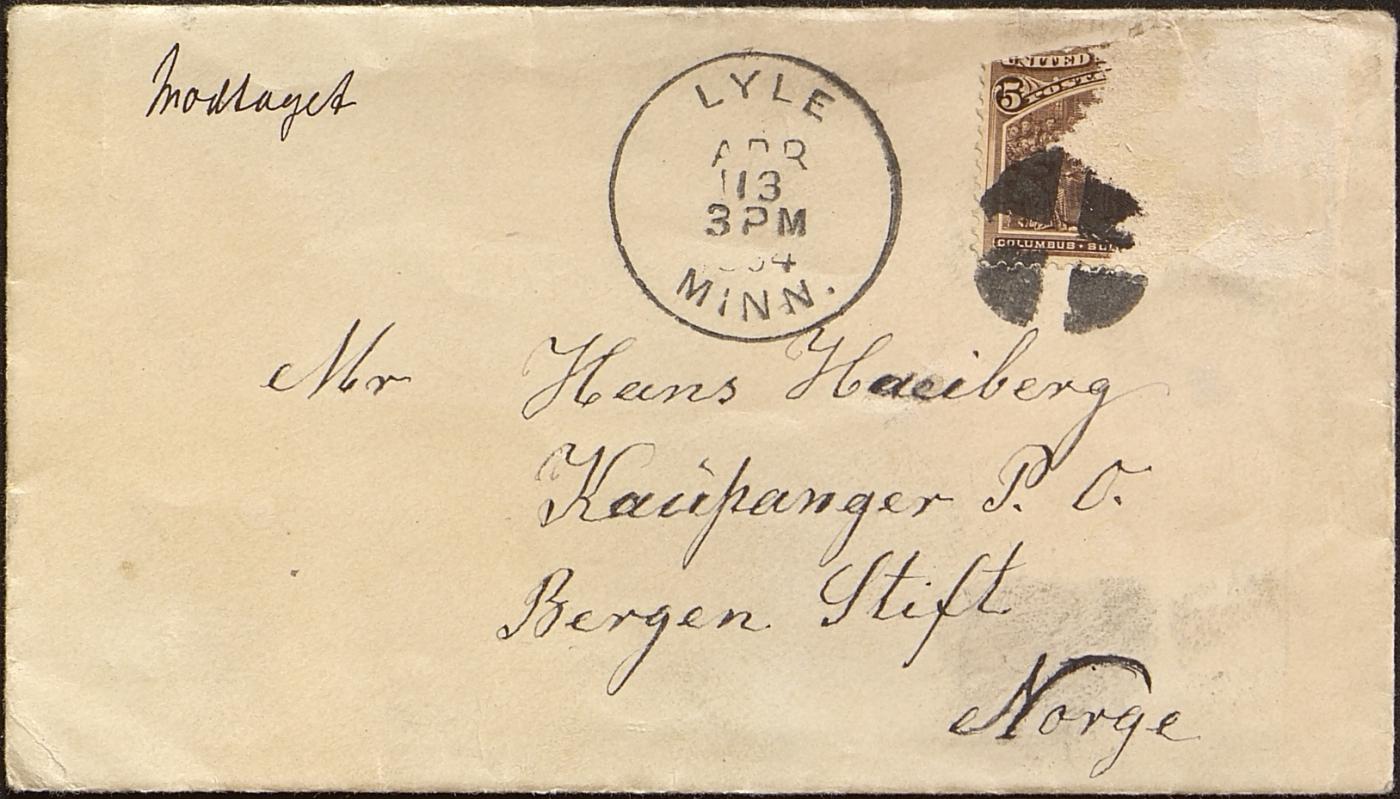 Modtaget
LYLE
APR
13
3PM
MINN.
UNITED
5
POST
COLUMBUS
Mr Hans Haeiberg
Kaupanger P. O.
Bergen Stift
Norge